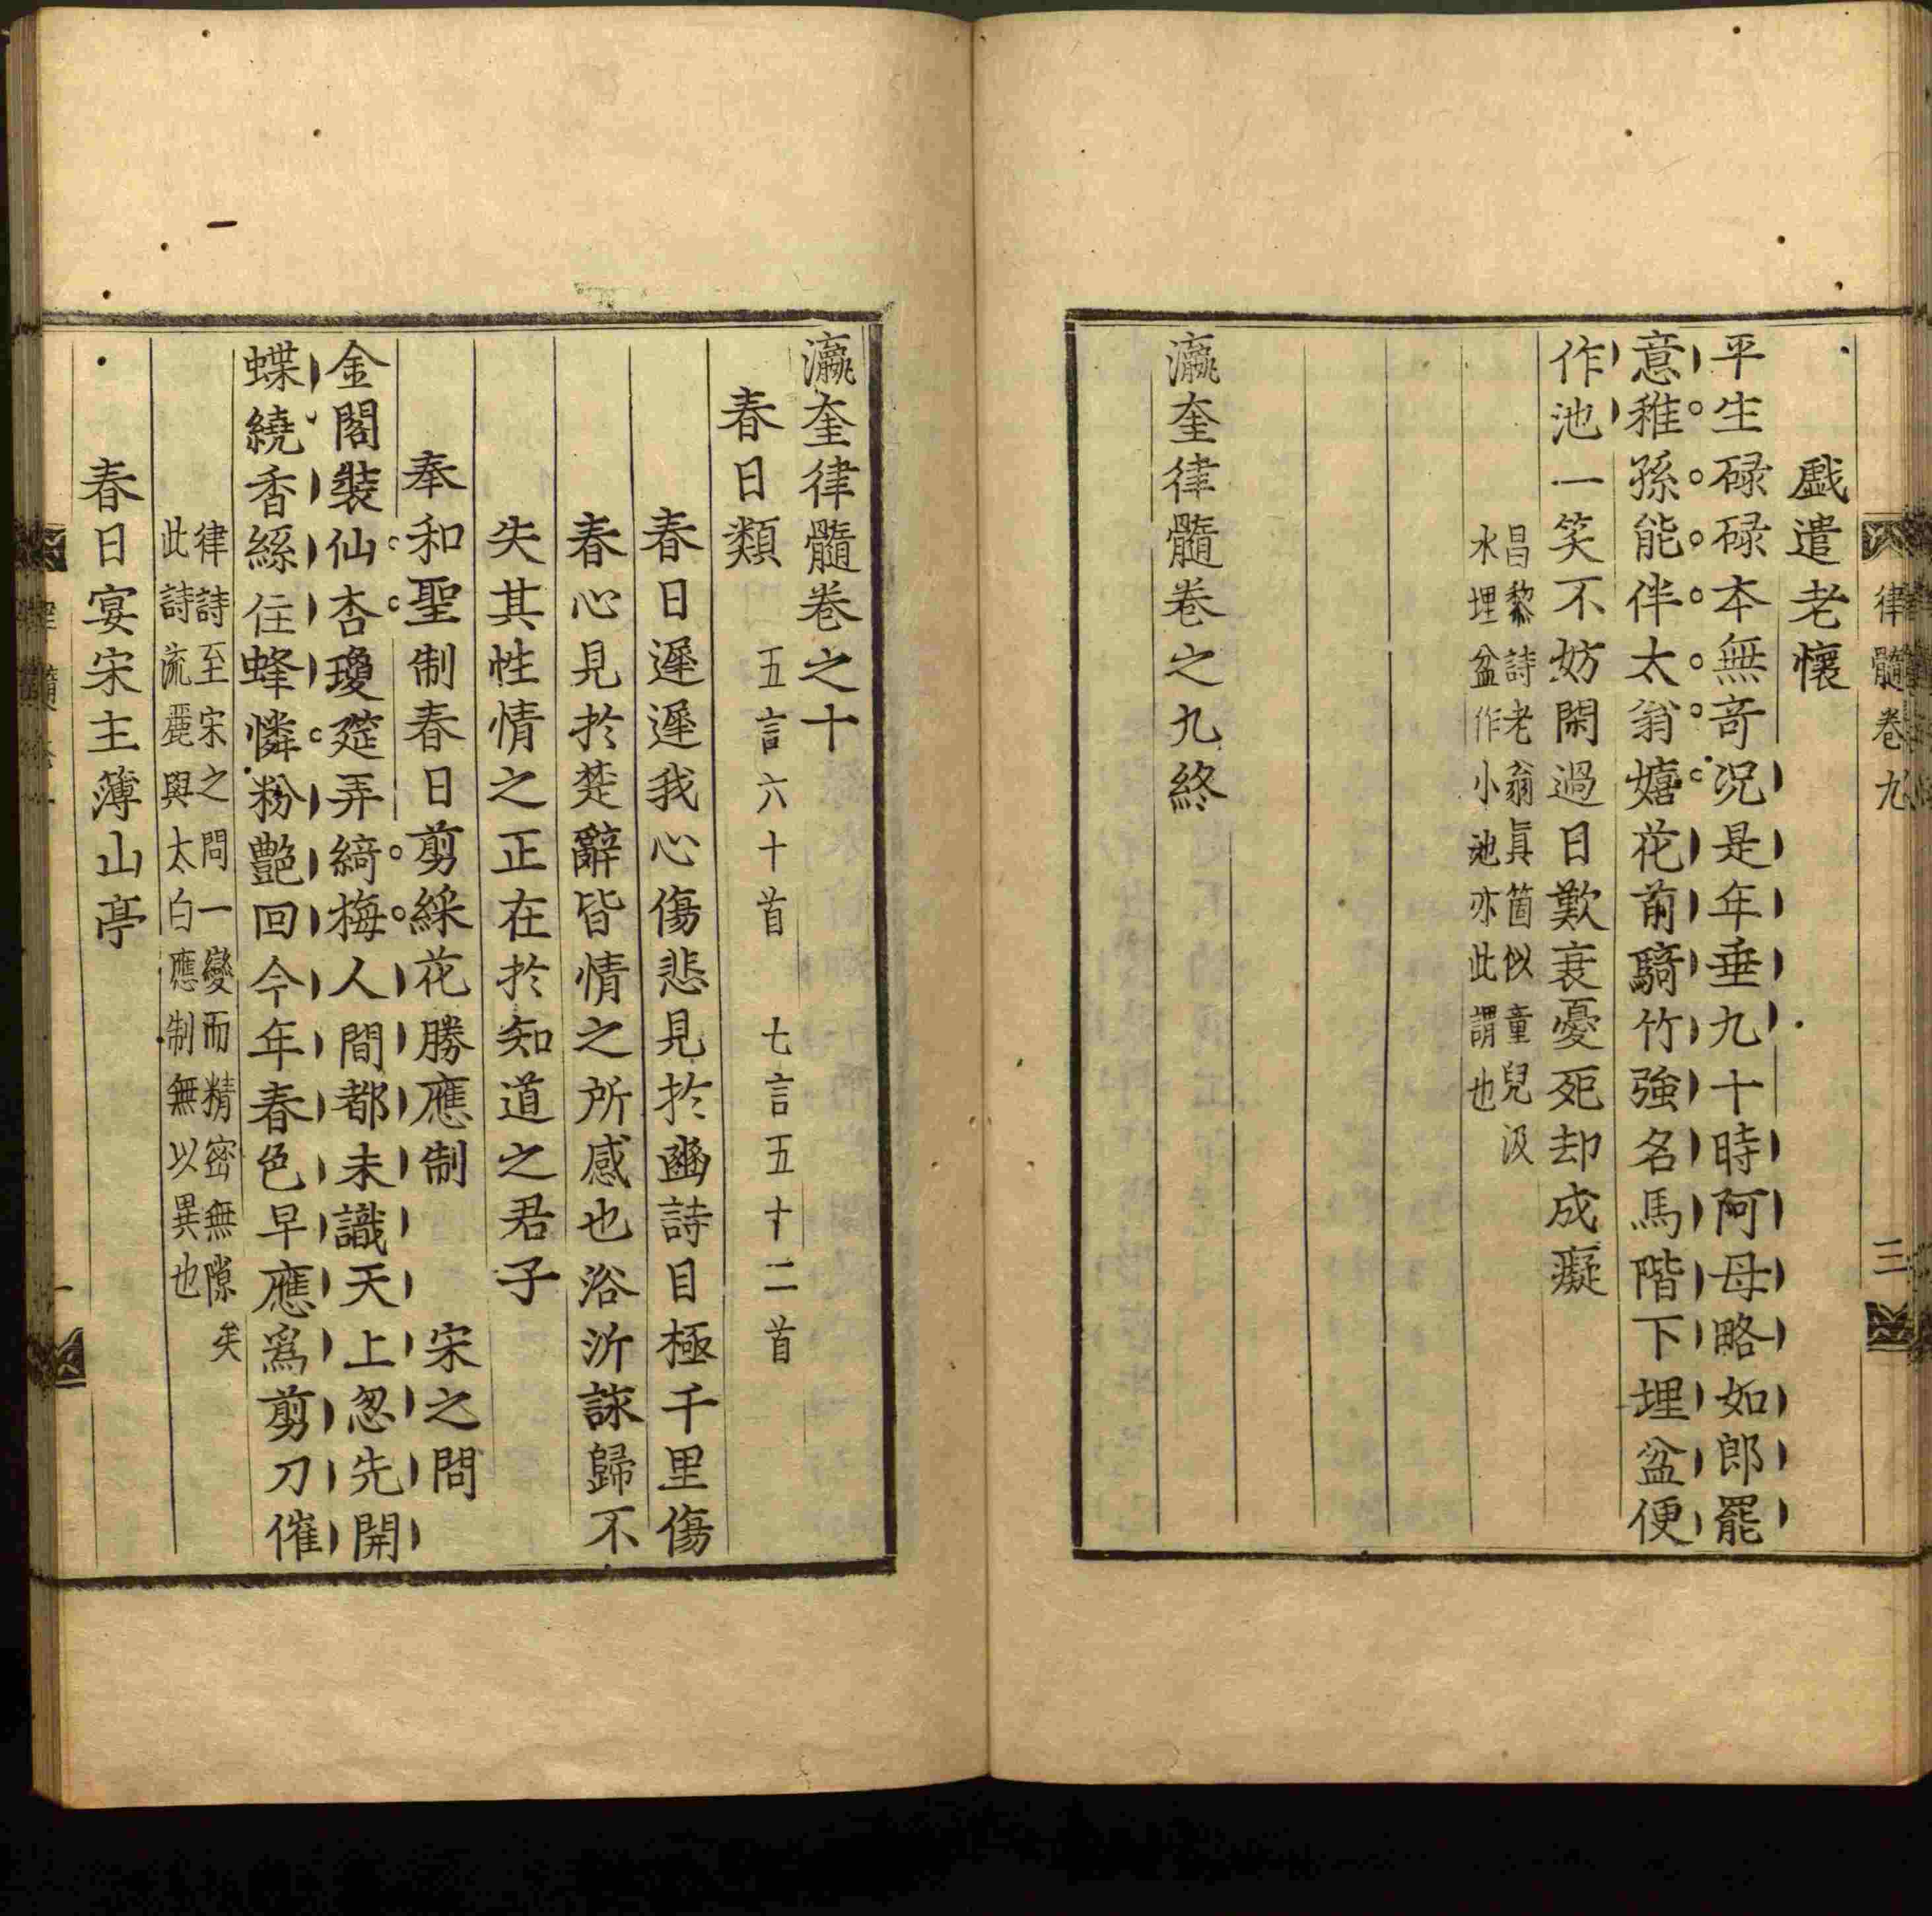 律髓卷九 三
戲遣老懷
平生碌碌本無奇況是年垂九十時阿母略如郎罷
意稚孫能伴太翁嬉花前騎竹強名馬階下埋盆便
作池一笑不妨閑過日歎衰憂死却成癡
昌黎詩老翁眞箇似童兒汲
水埋盆作小池亦此謂也
瀛奎律髓卷之九終
瀛奎律髓卷之十
春日類 五言六十首 七言五十二首
春日遲遲我心傷悲見於豳詩目極千里傷
春心見於楚辭皆情之所感也浴沂詠歸不
失其性情之正在於知道之君子
奉和聖制春日剪綵花勝應制 宋之問
金閣裝仙杏瓊筵弄綺梅人間都未識天上忽先開
蝶繞香絲住蜂憐粉艷回今年春色早應爲剪刀催
律詩至宋之問一變而精密無隙矣
此詩流麗與太白應制無以異也
春日宴宋主薄山亭